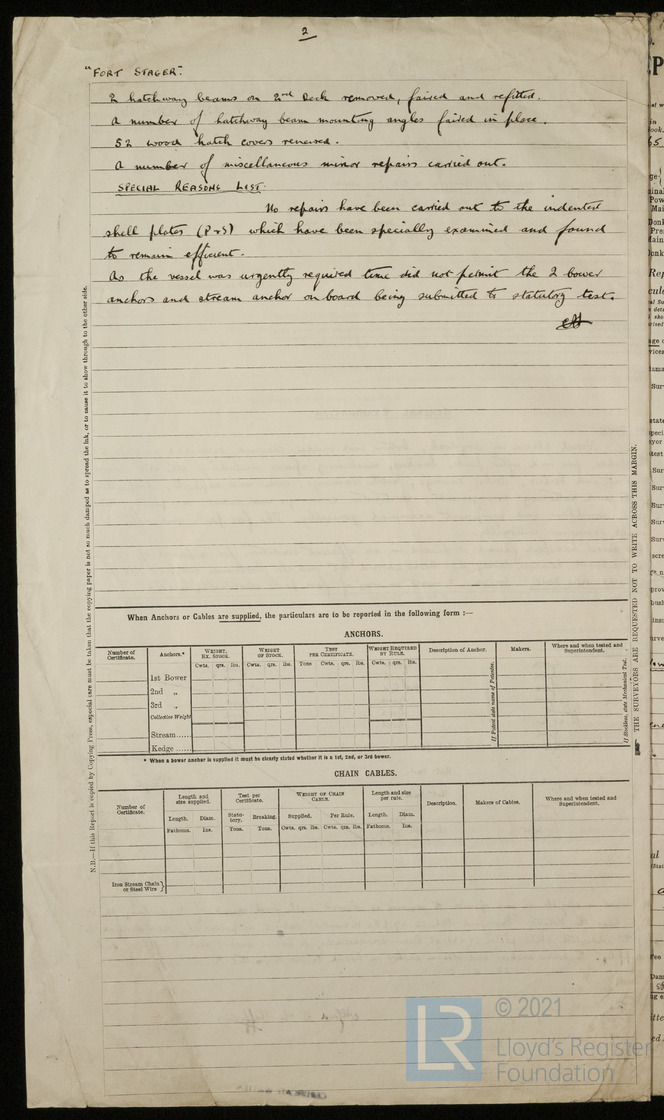 2
"FORT STAGER".
2 hatchway beams on 2nd Deck removed, faired and refitted.
A number of hatchway beam mounting angles faired in place.
52 wood hatch covers renewed.
A number of miscellaneous minor repairs carried out.
SPECIAL REASONS LIST.
No repairs have been carried out to the indented
shell plates (P+S) which have been specially examined and found
to remain efficient.
As the vessel was urgently required time did not permit the 2 bower
anchors and stream anchor on board being submitted to statutory test.
N.B.—If this Report is copied by Copying Press, especial care must be taken that the copying paper is not so much damped as to spread the ink, or to cause it to show through to the other side.
THE SURVEYORS ARE REQUESTED NOT TO WRITE ACROSS THIS MARGIN.
When Anchors or Cables are supplied, the particulars are to be reported in the following form :—
ANCHORS.
Number of Certificate. Anchors.* WEIGHT, EX. STOCK. WEIGHT OF STOCK. TEST PER CERTIFICATE. WEIGHT REQUIRED BY RULE. Description of Anchor. Makers. Where and when tested and Superintendent.
Cwts. qrs. lbs. Cwts. qrs. lbs. Tons Cwts. qrs. lbs. Cwts. qrs. lbs.
1st Bower
2nd „
3rd „
Collective Weight
Stream......
Kedge ......
If Patent state name of Patentee.
If Stockless, state Mechanical Test.
* When a bower anchor is supplied it must be clearly stated whether it is a 1st, 2nd, or 3rd bower.
CHAIN CABLES.
Number of Certificate. Length and size supplied. Test per Certificate. WEIGHT OF CHAIN CABLE. Length and size per rule. Description. Makers of Cables. Where and when tested and Superintendent.
Length. Diam. Statutory. Breaking. Supplied. Per Rule. Length. Diam.
Fathoms. Ins. Tons. Tons. Cwts. qrs. lbs. Cwts. qrs. lbs. Fathoms. Ins.
Iron Stream Chain or Steel Wire }
LR
© 2021
Lloyd's Register
Foundation